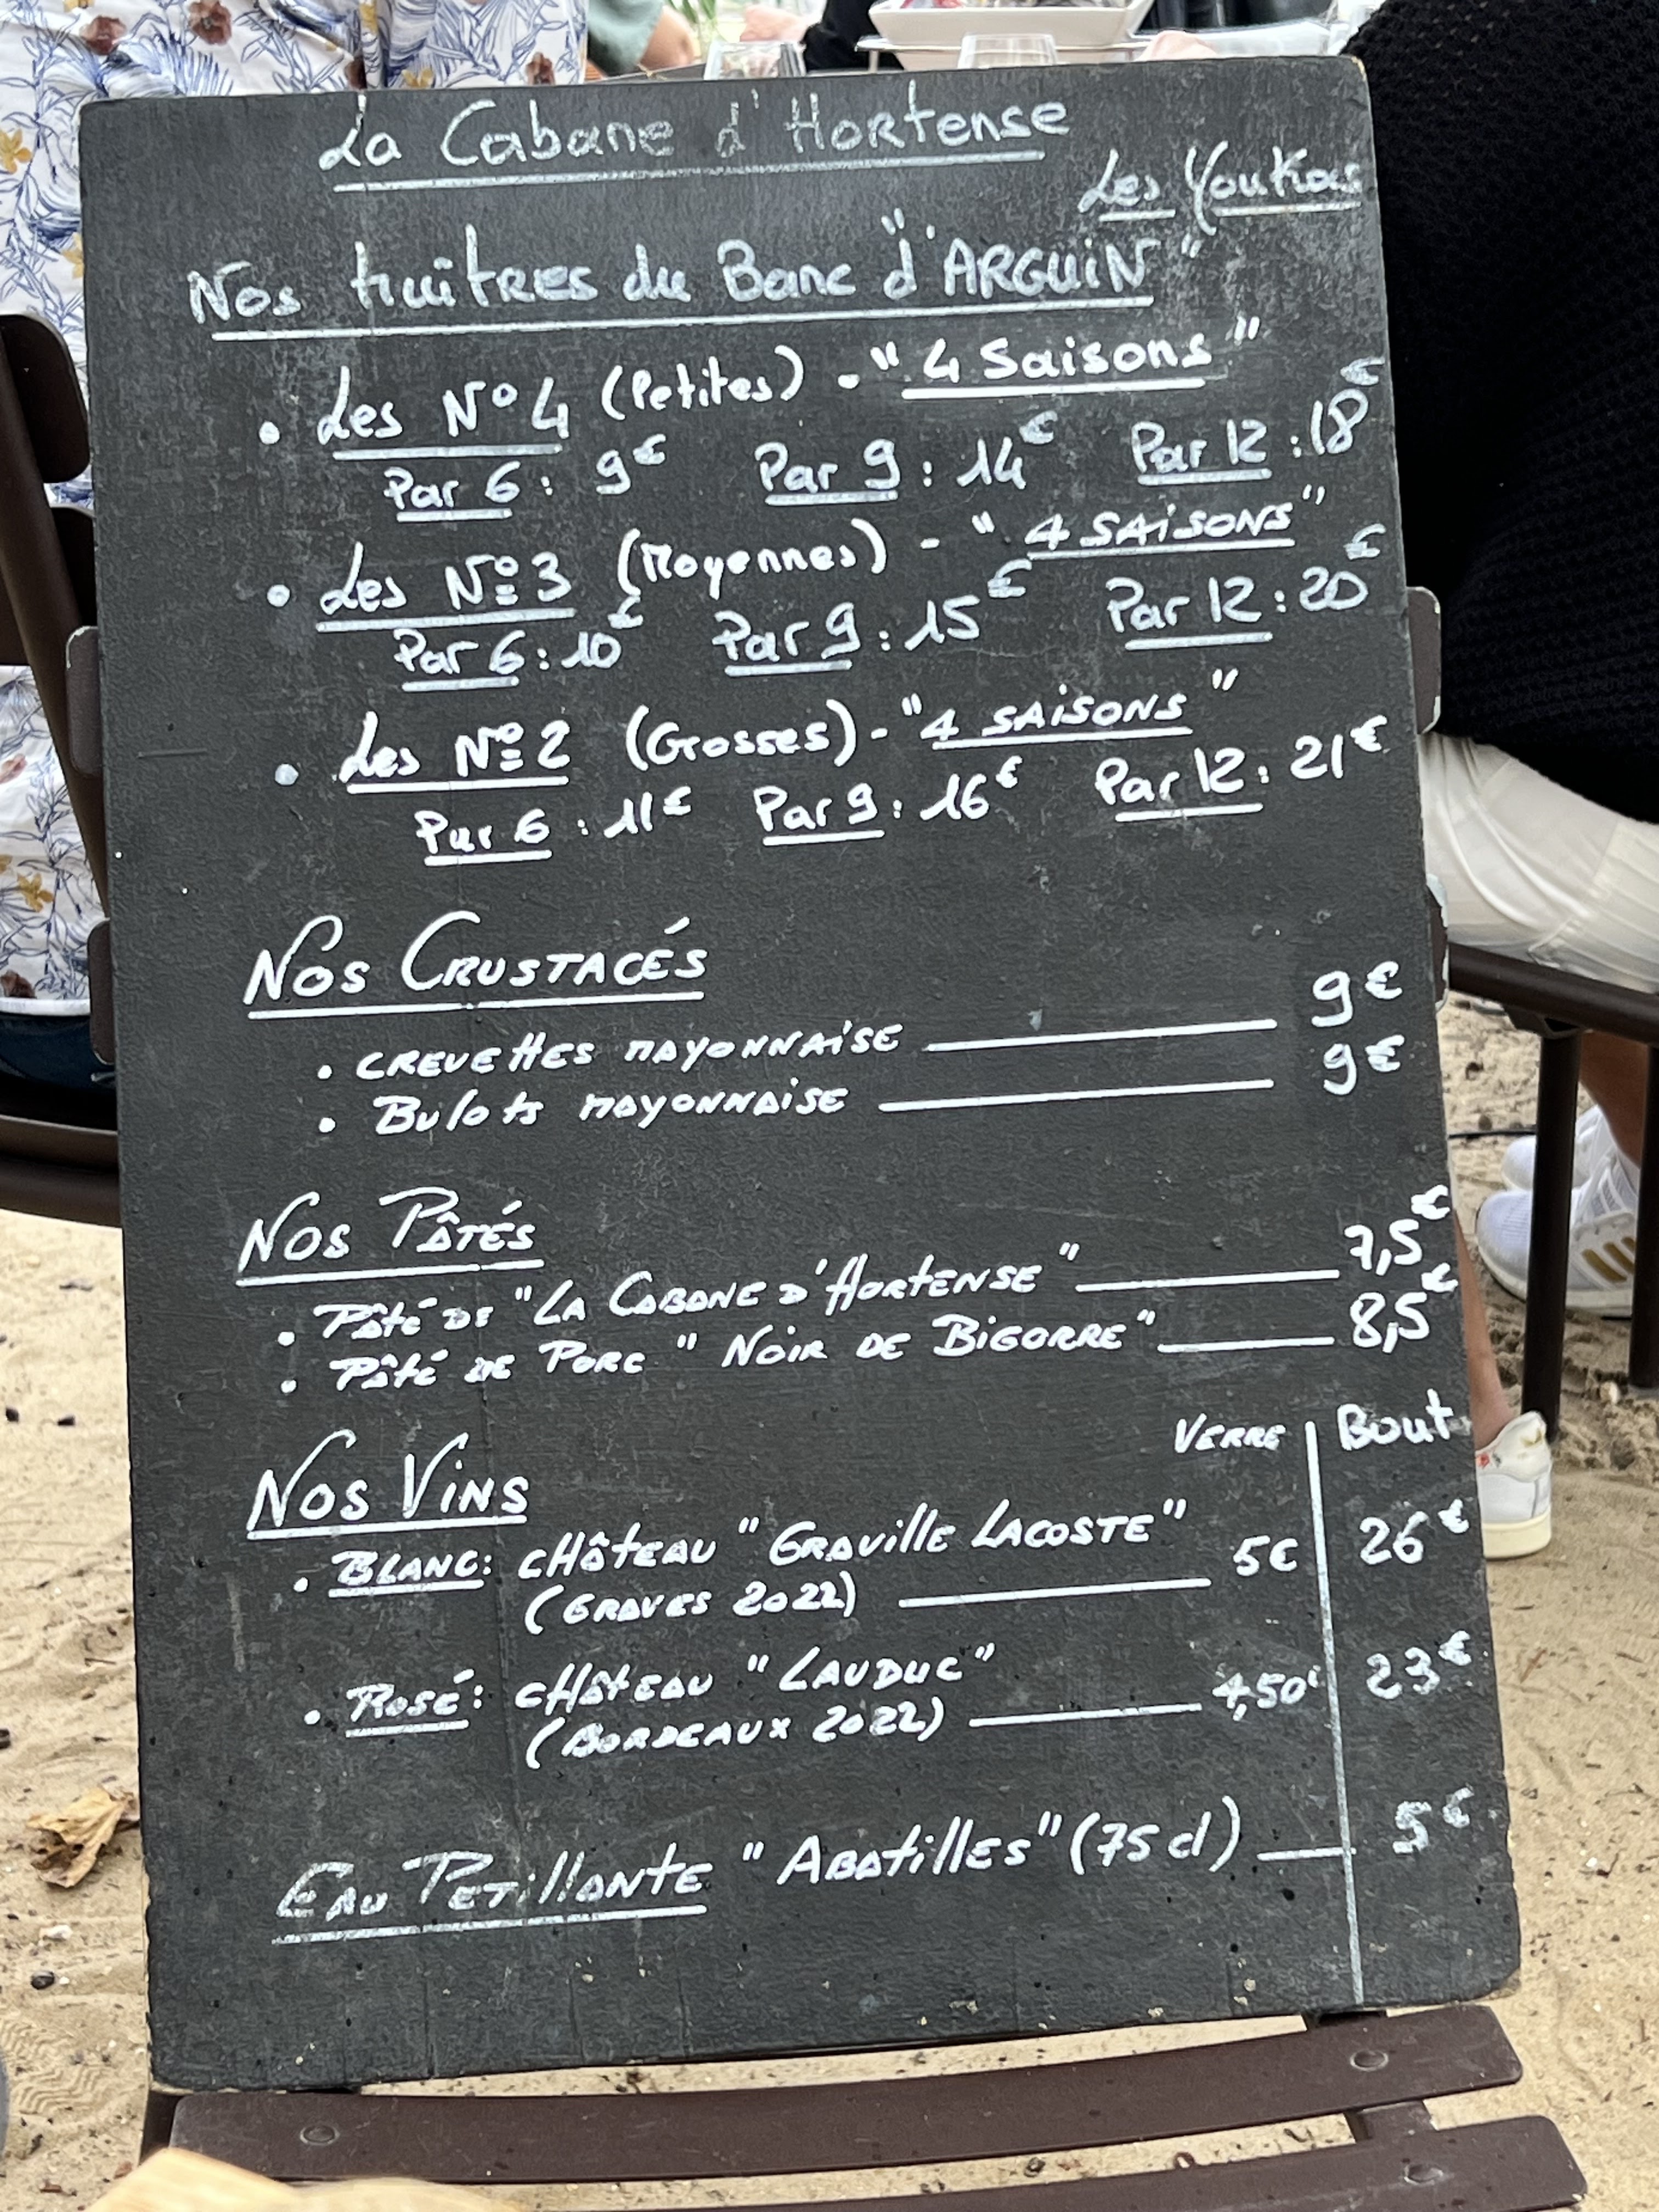 La Cabane d'Hortense
Les Youkas
Nos huîtres du Banc "d'ARGUIN"
• Les N°4 (Petites) - "4 Saisons"
Par 6 : 9€ Par 9 : 14€ Par 12 : 18€
• Les N°3 (Moyennes) - "4 SAiSONS"
Par 6 : 10€ Par 9 : 15€ Par 12 : 20€
• Les N°2 (Grosses) - "4 SAiSONS"
Par 6 : 11€ Par 9 : 16€ Par 12 : 21€
NOS CRUSTACÉS
• CREVEttES MAYONNAiSE 9€
• Bulots MAYONNAiSE 9€
NOS PÂTÉS
• Pâté DE "LA CABANE D'HORTENSE" 7,5€
• Pâté DE PORC "NOiR DE BiGORRE" 8,5€
VERRE Bout
NOS ViNS
• BLANC : CHÂtEAU "GRAVille LACOSTE"
(GRAVES 2022) 5€ 26€
• ROSÉ : CHÂtEAU "LAUDUC"
(BORDEAUX 2022) 4,50€ 23€
EAU PETillANtE "ABAtillES" (75 cl) 5€